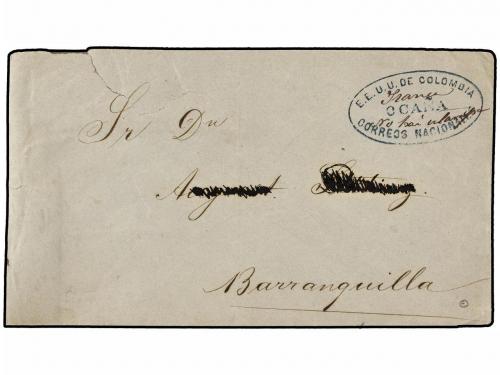 E.E.U.U. DE COLOMBIA
Franca
OCAÑA
No hai estampillas
CORREOS NACIONALES
Sr Dn
Barranquilla